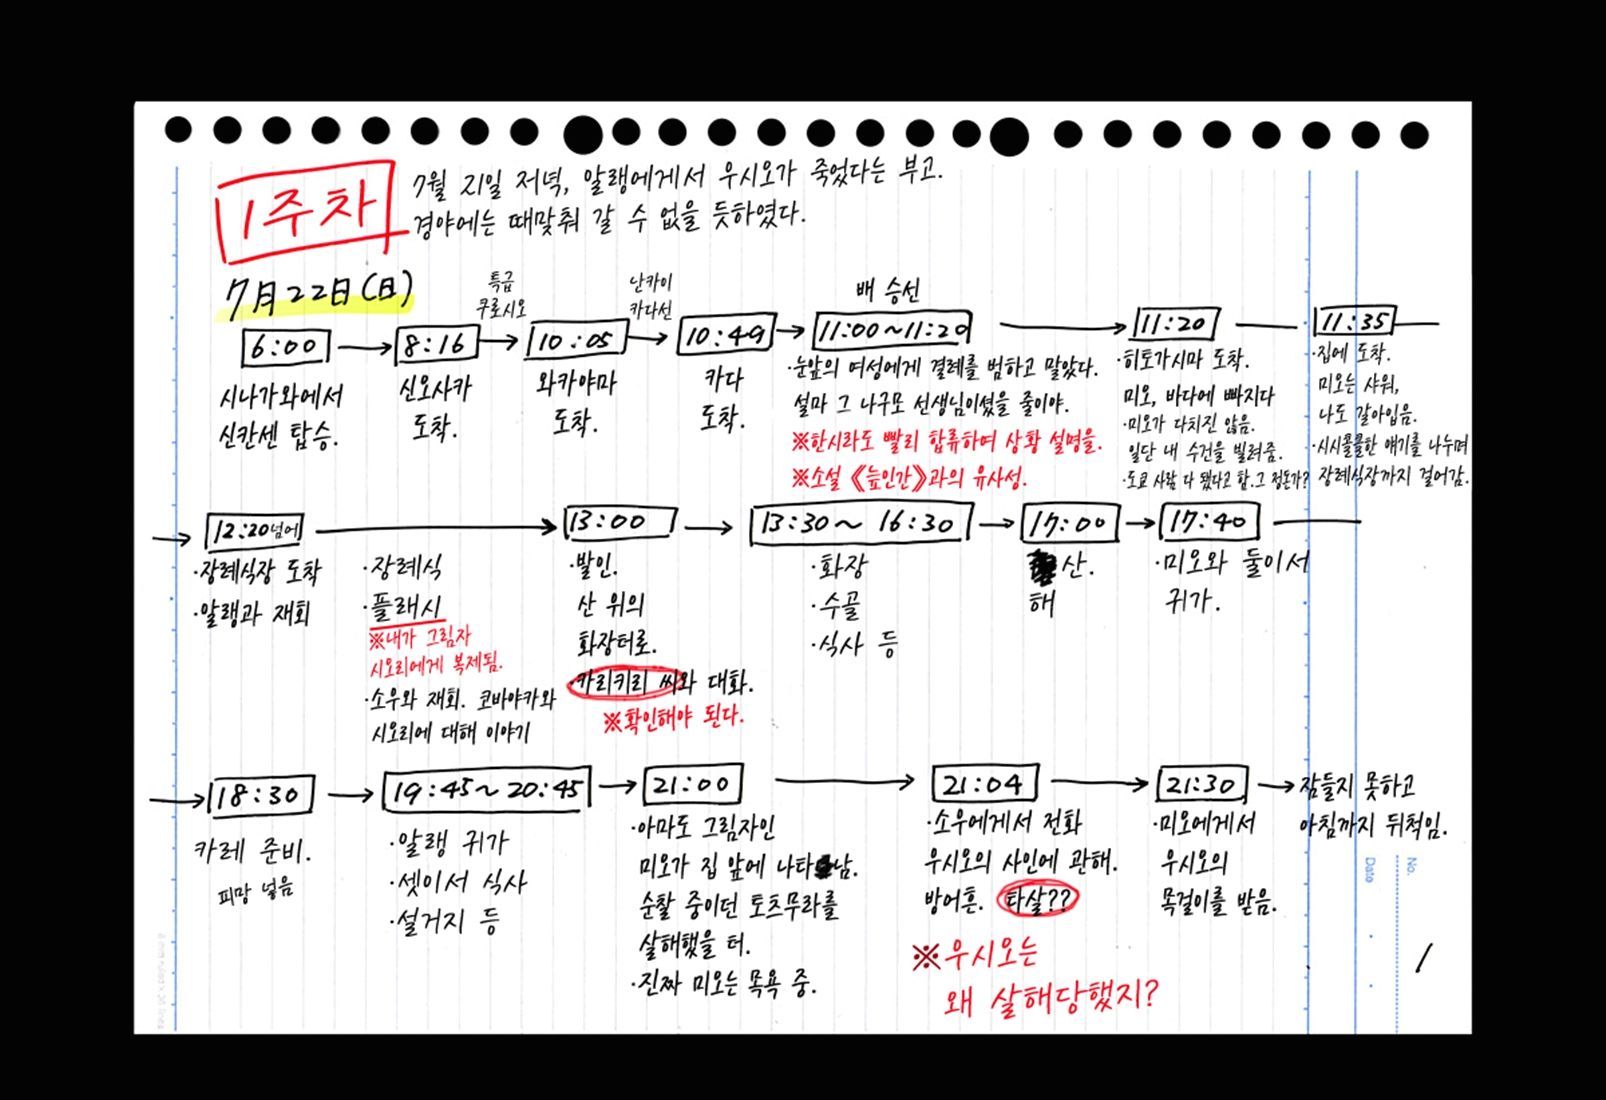 1주차
7월 21일 저녁, 알랭에게서 우시오가 죽었다는 부고.
경야에는 때맞춰 갈 수 없을 듯하였다.
7月22日(日)
6:00
시나가와에서
신칸센 탑승.
8:16
신오사카
도착.
특급
쿠로시오
10:05
와카야마
도착.
난카이
카다선
10:49
카다
도착.
배 승선
11:00~11:20
·눈앞의 여성에게 결례를 범하고 말았다.
설마 그 나구모 선생님이셨을 줄이야.
※한시라도 빨리 합류하여 상황 설명을.
※소설 《늪인간》과의 유사성.
11:20
·히토가시마 도착.
미오, 바다에 빠지다
·미오가 다치진 않음.
일단 내 수건을 빌려줌.
·도쿄 사람 다 됐다고 함. 그 정돈가?
11:35
·집에 도착.
미오는 샤워,
나도 갈아입음.
·시시콜콜한 얘기를 나누며
장례식장까지 걸어감.
12:20넘어
·장례식장 도착
·알랭과 재회
·장례식
·플래시
※내가 그림자
시오리에게 복제됨.
·소우와 재회. 코바야카와
시오리에 대해 이야기
13:00
·발인.
산 위의
화장터로.
·카리키리 씨와 대화.
※확인해야 된다.
13:30~16:30
·화장
·수골
·식사 등
17:00
산.
해
17:40
·미오와 둘이서
귀가.
18:30
카레 준비.
피망 넣음
19:45~20:45
·알랭 귀가
·셋이서 식사
·설거지 등
21:00
·아마도 그림자인
미오가 집 앞에 나타남.
순찰 중이던 토츠무라를
살해했을 터.
·진짜 미오는 목욕 중.
21:04
·소우에게서 전화
우시오의 사인에 관해.
방어흔. 타살??
※우시오는
왜 살해당했지?
21:30
·미오에게서
우시오의
목걸이를 받음.
잠들지 못하고
아침까지 뒤척임.
No.
Date
1